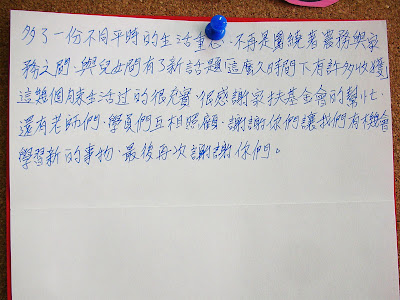 多了一份不同平時的生活重心、不再是圍繞著農務與家
務之間、與兒女間有了新話題、這麼久時間下有許多收獲
這幾個月來生活过的很充實、很感謝家扶基金會的幫忙、
還有老師們、學員們互相照顧、謝謝你們讓我們有機會
學習新的事物、最後再次謝謝你們。